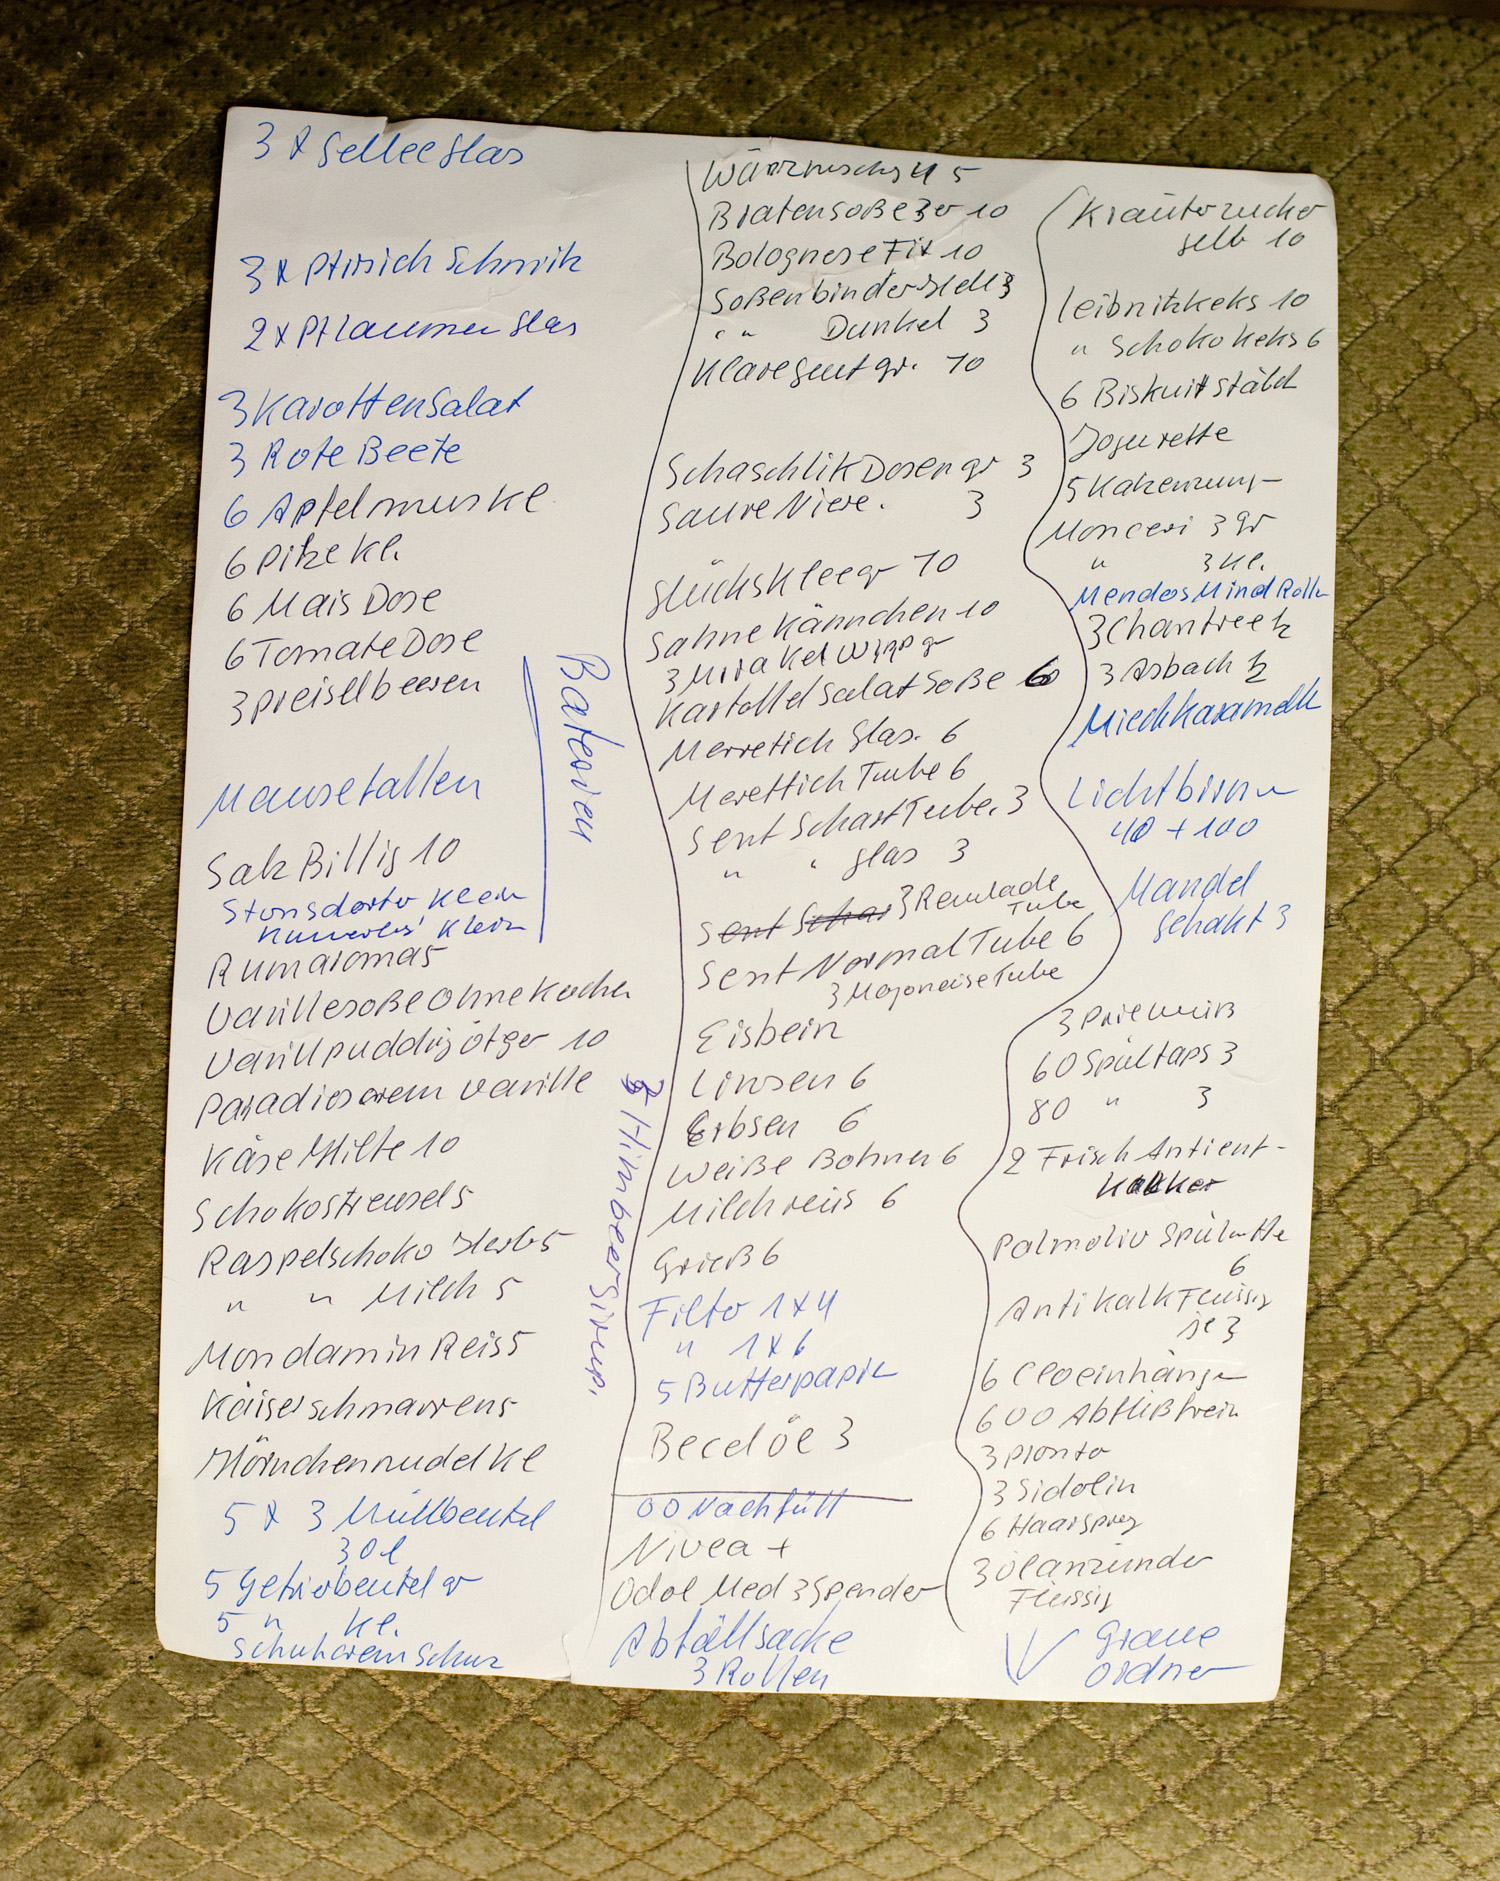 3 x Gellee Glas
3 x Pfirsich Schnitz
2 x Pflaumen Glas
3 Karotten Salat
3 Rote Beete
6 Apfelmus Kl
6 Pilze Kl.
6 Mais Dose
6 Tomate Dose
3 Preiselbeeren
Mausefallen
Salz Billig 10
Stonsdorfer Klein
Klein
Rumaroma 5
Vanillesoße Ohne Kochen
Vanillpudding ötger 10
Paradiescrem Vanille
Käse Hilfe 10
Schokostreusel 5
Raspelschoko Herb 5
" " Milch 5
Mondamin Reis 5
Kaiserschmarren 5
Hörnchennudel Kl
5 x 3 Müllbeutel
30 l
5 Gefrierbeutel gr
5 " Kl.
Schuhcrem Schwz
Baterien
3 Himbeer Sirup.
Würzmischg 4 5
Bratensoße 3er 10
Bolognese Fix 10
Soßenbinder Hell 3
" " Dunkel 3
Klare gent gr. 10
Schaschlik Dosen gr 3
Saure Niere. 3
Glücksklee gr 10
Sahne Kännchen 10
3 Mirakel Wipp gr
Kartoffelsalat Soße 60
Merretich Glas. 6
Merettich Tube 6
Senf Scharf Tube. 3
" " Glas 3
Senf Schar 3 Remulade
Tube
Senf Normal Tube 6
3 Majoneise Tube
Eisbein
Linsen 6
Erbsen 6
Weiße Bohnen 6
Milchreis 6
Grieß 6
Filter 1 x 4
" 1 x 6
5 Butterpapir
Becel öl 3
00 Nachfüll
Nivea +
Odol Med 3 Spender
Abfallsäcke
3 Rollen
Kräuterzucker
gelb 10
Leibnitzkeks 10
" Schoko Keks 6
6 Biskuitstäbch
Jogurette
5 Katzenzung
Monceri 3 gr
" 3 Kl.
Mendos Mind Rolln
3 Chantree
3 Asbach
Milchkaramell
Lichtbirnen
40 + 100
Mandel
Gehakt 3
3 Prielweiß
60 Spültaps 3
80 " 3
2 Frisch Antient-
kalker
Palmoliv Spülmitte
6
Antikalk Flüssig
je 3
6 Cloeinhänger
6 00 Abflißfrein
3 Pronto
3 Sidolin
6 Haarspray
3 Ölanzünder
Flüssig
Graue
Ordner